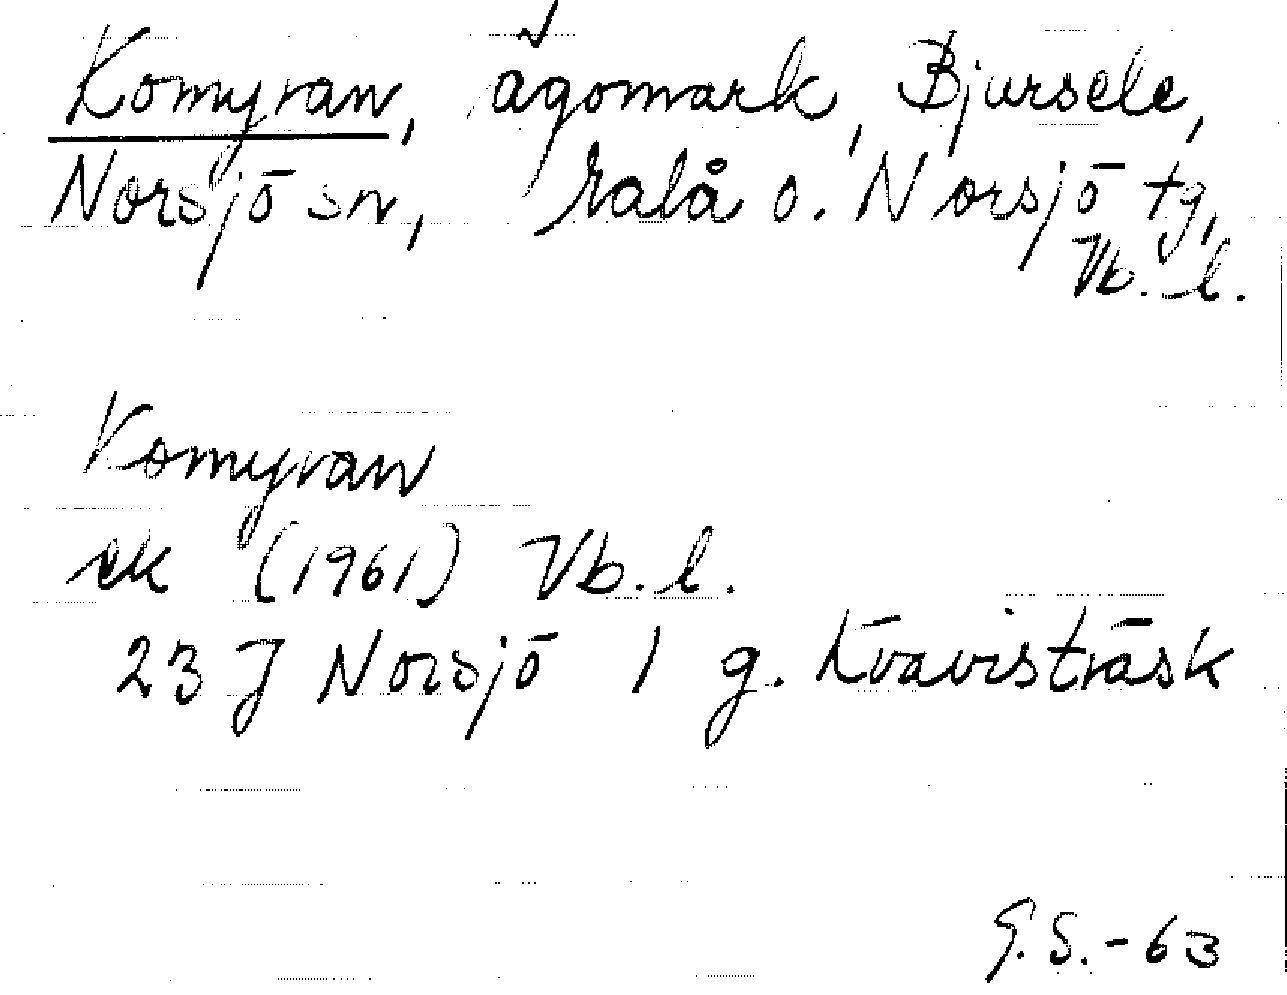 Komyran, ägomark, Bjursele,
Norsjö sn, Malå o. Norsjö tg,
Vb. l.
Komyran
ek (1961) Vb. l.
23 J Norsjö 1 g. Kvavisträsk
G.S.-63